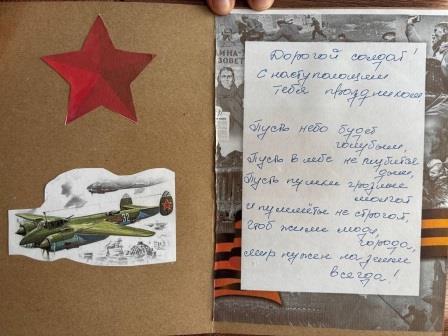 АИНА-
ЗОВЕТ
Дорогой солдат!
С наступающим
тебя праздником
Пусть небо будет
голубым,
Пусть в небе не клубится
дым,
Пусть пушки грозные
молчат
и пулемёты не строчат,
Чтоб жили люди,
города,
мир нужен на земле
всегда!
52